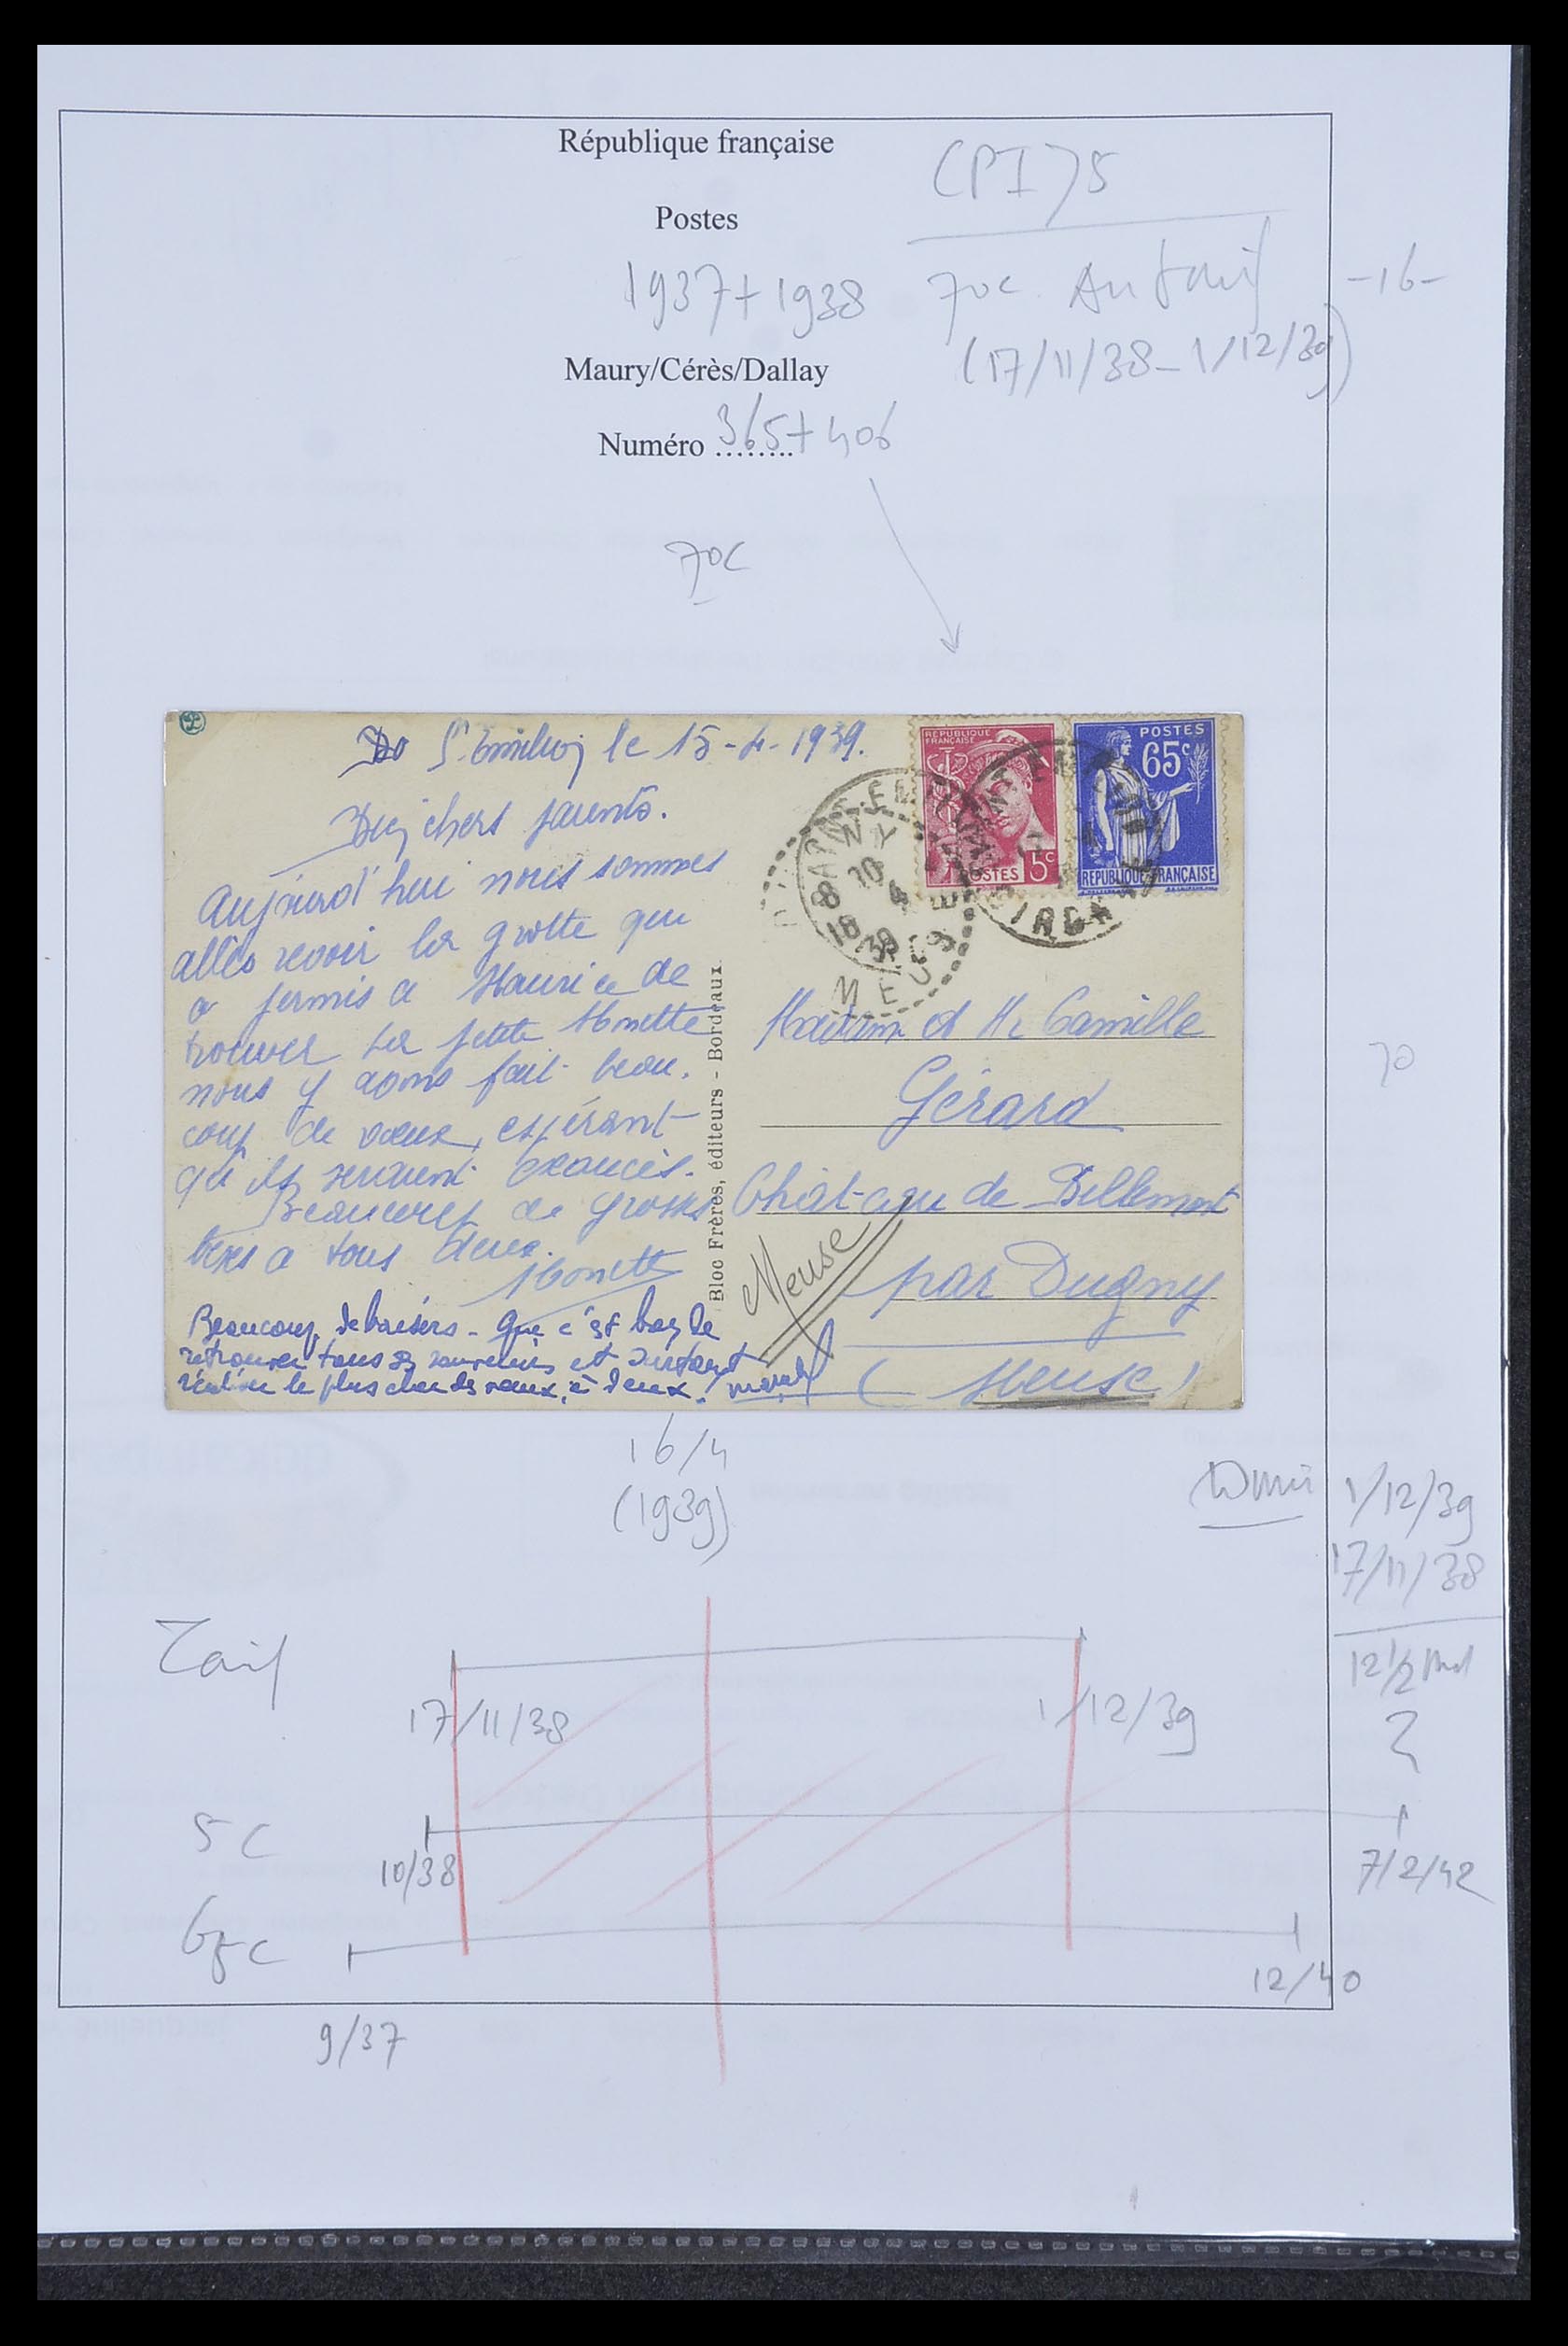 République française
(PI)5
Postes
1937+1938 70c Au tarif -16-
(17/11/38-1/12/39)
Maury/Cérès/Dallay
Numéro ........ 365+406
70c
St Emilion le 15-4-1939.
chers parents.
Aujourd'hui nous sommes
allés revoir la grotte qui
a permis a Maurice de
trouver sa petite Monette
nous y avons fait beau.
coup de vœux, espérant
qu'ils seraient exaucés.
Beaucoup de grosses
bises a tous deux.
Monette
Beaucoup de baisers - que c'est bon de
retrouver tous ses souvenirs et surtout
réaliser le plus cher des vœux, à deux!
Bloc Frères, éditeurs - Bordeaux
REPUBLIQUE
FRANÇAISE
POSTES 5c
POSTES
65c
REPUBLIQUE FRANÇAISE
NY
10
4
39
MEUSE
18
GIRONDE
Madame et Mr Camille
Gérard
Château de Billemont
Meuse
par Dugny
(Meuse)
70
16/4
(1939)
1/12/39
17/11/38
12 1/2
?
Tarif
17/11/38 1/12/39
5c
10/38 7/2/42
65c
9/37 12/40